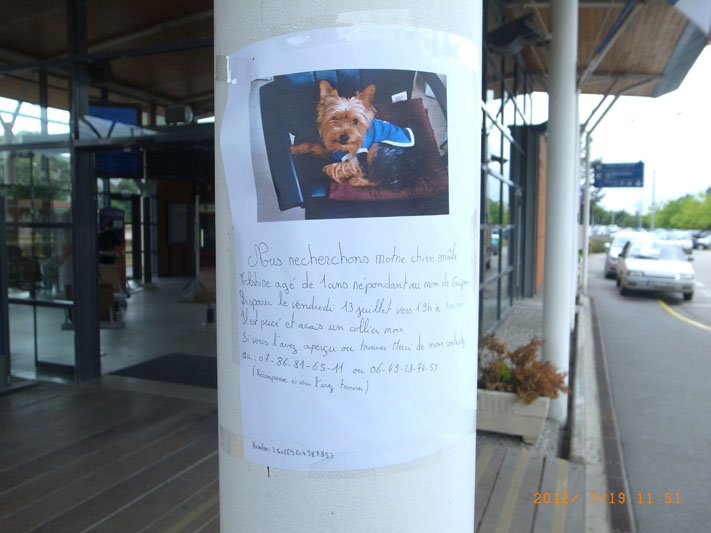 Nous recherchons notre chien mâle
Yorkshire agé de 1 ans répondant au nom de
Disparu le vendredi 13 juillet vers 19h à
Il est pucé et avais un collier noir
Si vous l'avez aperçu ou trouver Merci de nous contacter
au : 07-86-81-65-11 ou 06-49-28-74-59
(Récompense si vous l'avez trouver)
Numéro:
2012/ 7/19 11:51